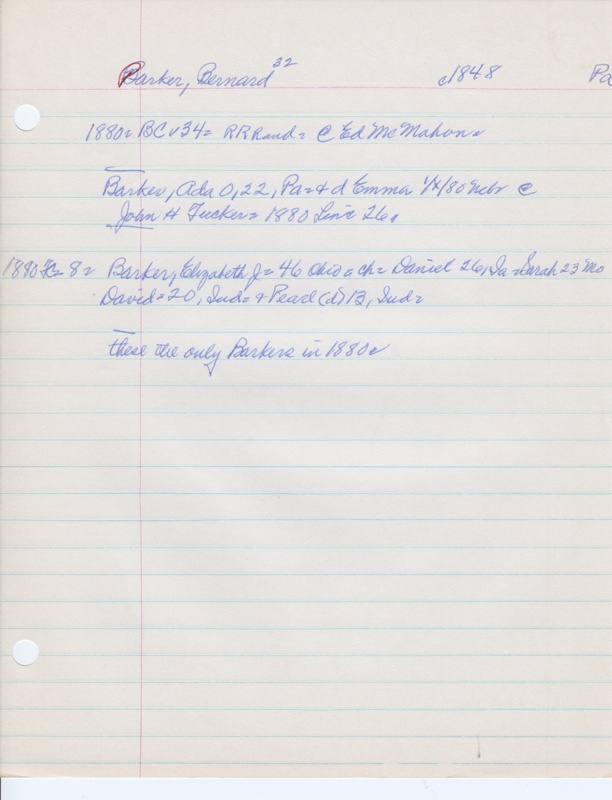 Barker, Bernard 32 c1848 Pa
1880= BCv34= RRRand= @ Ed McMahon=
Barker, Ada O, 22, Pa=+ d Emma 1/12/80 Nebr @
John H Tucker= 1880 Linc 26=
1880 8= Barker, Elizabeth J= 46 Ohio= ch= Daniel 26, Ia= Sarah 23 Mo
David=20, Ind= + Pearl (d) 13, Ind=
these the only Barkers in 1880=